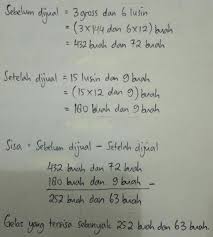 Sebelum dijual = 3 gross dan 6 lusin
= (3×144 dan 6×12) buah
= 432 buah dan 72 buah
Setelah dijual = 15 lusin dan 9 buah
= (15×12 dan 9) buah
= 180 buah dan 9 buah
Sisa = Sebelum dijual - Setelah dijual
432 buah dan 72 buah
180 buah dan 9 buah -
252 buah dan 63 buah
Gelas yang tersisa sebanyak 252 buah dan 63 buah.